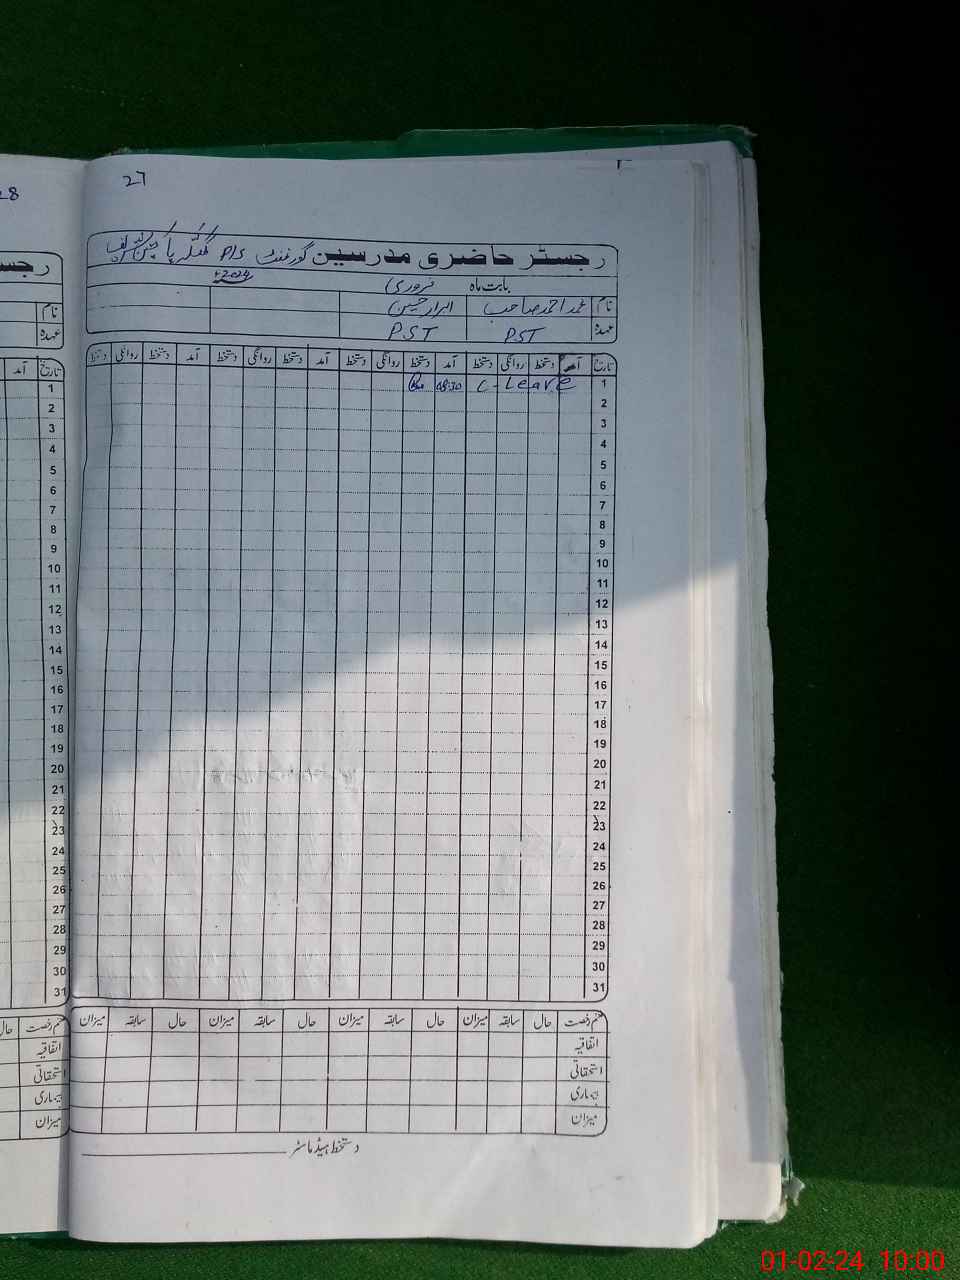 27
28
رجسٹر حاضری مدرسین گورنمنٹ P/S
بابت ماہ فروری 2024ء
نام محمد احمد صاحب ابرار حسین
عہدہ PST PST
تاریخ آمد دستخط روانگی دستخط آمد دستخط روانگی دستخط آمد دستخط روانگی دستخط آمد دستخط روانگی دستخط
1 C-Leave 08:30
2
3
4
5
6
7
8
9
10
11
12
13
14
15
16
17
18
19
20
21
22
23
24
25
26
27
28
29
30
31
قسم رخصت حال سابقہ میزان حال سابقہ میزان حال سابقہ میزان حال سابقہ میزان
اتفاقیہ
استحقاقی
بیماری
میزان
دستخط ہیڈ ماسٹر
نام
عہدہ
تاریخ آمد
1
2
3
4
5
6
7
8
9
10
11
12
13
14
15
16
17
18
19
20
21
22
23
24
25
26
27
28
29
30
31
قسم رخصت حال
اتفاقیہ
استحقاقی
بیماری
میزان
01-02-24 10:00